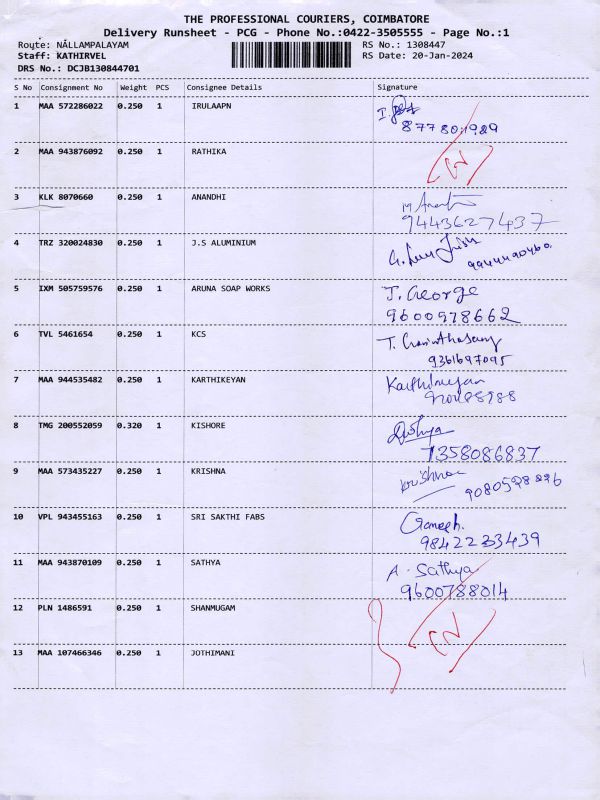 THE PROFESSIONAL COURIERS, COIMBATORE
Delivery Runsheet - PCG - Phone No.:0422-3505555 - Page No.:1
Route: NALLAMPALAYAM RS No.: 1308447
Staff: KATHIRVEL RS Date: 20-Jan-2024
DRS No.: DCJB130844701
S No Consignment No Weight PCS Consignee Details Signature
1 MAA 572286022 0.250 1 IRULAAPN
2 MAA 943876092 0.250 1 RATHIKA
3 KLK 8070660 0.250 1 ANANDHI
9443627437
4 TRZ 320024830 0.250 1 J.S ALUMINIUM
5 IXM 505759576 0.250 1 ARUNA SOAP WORKS J. George
9600978662
6 TVL 5461654 0.250 1 KCS
9361697095
7 MAA 944535482 0.250 1 KARTHIKEYAN Karthikeyan
8 TMG 200552059 0.320 1 KISHORE
7358086837
9 MAA 573435227 0.250 1 KRISHNA Krishna
10 VPL 943455163 0.250 1 SRI SAKTHI FABS Ganesh.
9842233439
11 MAA 943870109 0.250 1 SATHYA A. Sathya
9600788014
12 PLN 1486591 0.250 1 SHANMUGAM
13 MAA 107466346 0.250 1 JOTHIMANI